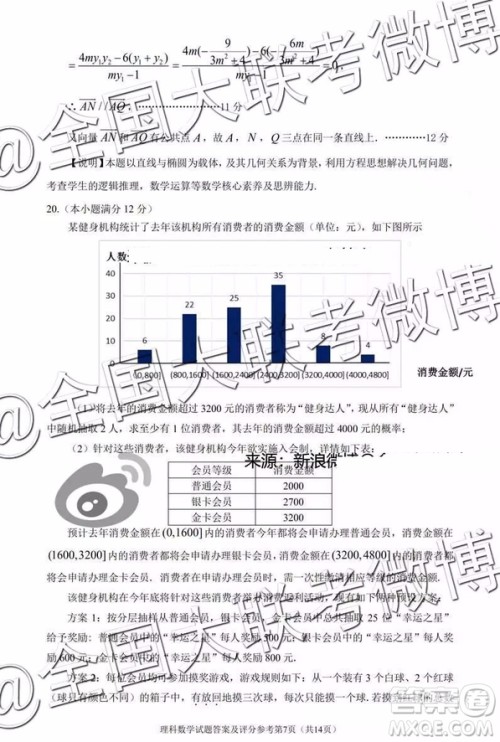 = 4my₁y₂−6(y₁+y₂) / my₁−1 = 4m(−9/3m²+4)−6(−6m/3m²+4) / my₁−1 = 0
∴ AN // AQ. ……………11分
又向量 AN 和 AQ 有公共点 A，故 A，N，Q 三点在同一条直线上．…………12分
【说明】本题以直线与椭圆为载体，及其几何关系为背景，利用方程思想解决几何问题，
考查学生的逻辑推理，数学运算等数学核心素养及思辨能力.
20.（本小题满分 12 分）
某健身机构统计了去年该机构所有消费者的消费金额（单位：元），如下图所示
人数
40
30
20
10
0
6
22
25
35
8
4
(0,800]
(800,1600]
(1600,2400]
(2400,3200]
(3200,4000]
(4000,4800]
消费金额/元
（1）将去年的消费金额超过 3200 元的消费者称为“健身达人”，现从所有“健身达人”
中随机抽取 2 人，求至少有 1 位消费者，其去年的消费金额超过 4000 元的概率；
（2）针对这些消费者，该健身机构今年欲实施入会制，详情如下表：
来源：新浪微博
会员等级 消费金额
普通会员 2000
银卡会员 2700
金卡会员 3200
预计去年消费金额在 (0,1600] 内的消费者今年都将会申请办理普通会员，消费金额在
(1600,3200] 内的消费者都将会申请办理银卡会员，消费金额在 (3200,4800] 内的消费者
都将会申请办理金卡会员．消费者在申请办理会员时，需一次性缴清相应等级的消费金额.
该健身机构在今年年底将针对这些消费者举办消费返利活动，现有如下两种预设方案：
方案 1：按分层抽样从普通会员，银卡会员，金卡会员中总共抽取 25 位“幸运之星”
给予奖励：普通会员中的“幸运之星”每人奖励 500 元；银卡会员中的“幸运之星”每人奖
励 600 元；金卡会员中的“幸运之星”每人奖励 800 元．
方案 2：每位会员均可参加摸奖游戏，游戏规则如下：从一个装有 3 个白球、2 个红球
（球只有颜色不同）的箱子中，有放回地摸三次球，每次只能摸一个球．
理科数学试题答案及评分参考第7页（共14页）
@全国大联考微博
@全国大联考微博